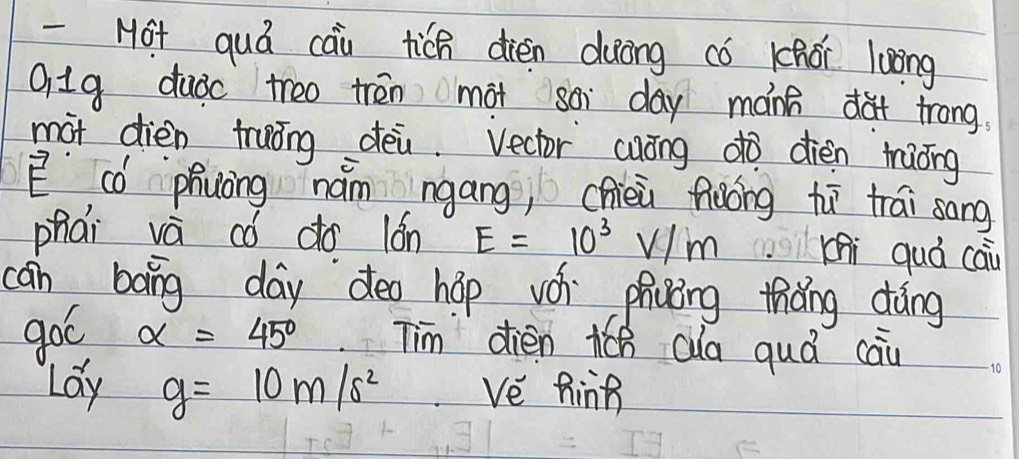 - Một quả cầu tích điện dương có khối lượng
0,1g được treo trên một sợi dây mảnh đặt trong
một điện trường đều. Vector cường độ điện trường
E⃗ có phương nằm ngang, chiều hướng từ trái sang
phải và có độ lớn E = 10³ V/m. Khi quả cầu
cân bằng dây đeo hợp với phương thẳng đứng
góc α = 45°. Tìm điện tích của quả cầu
Lấy g = 10 m/s². Vẽ hình
10